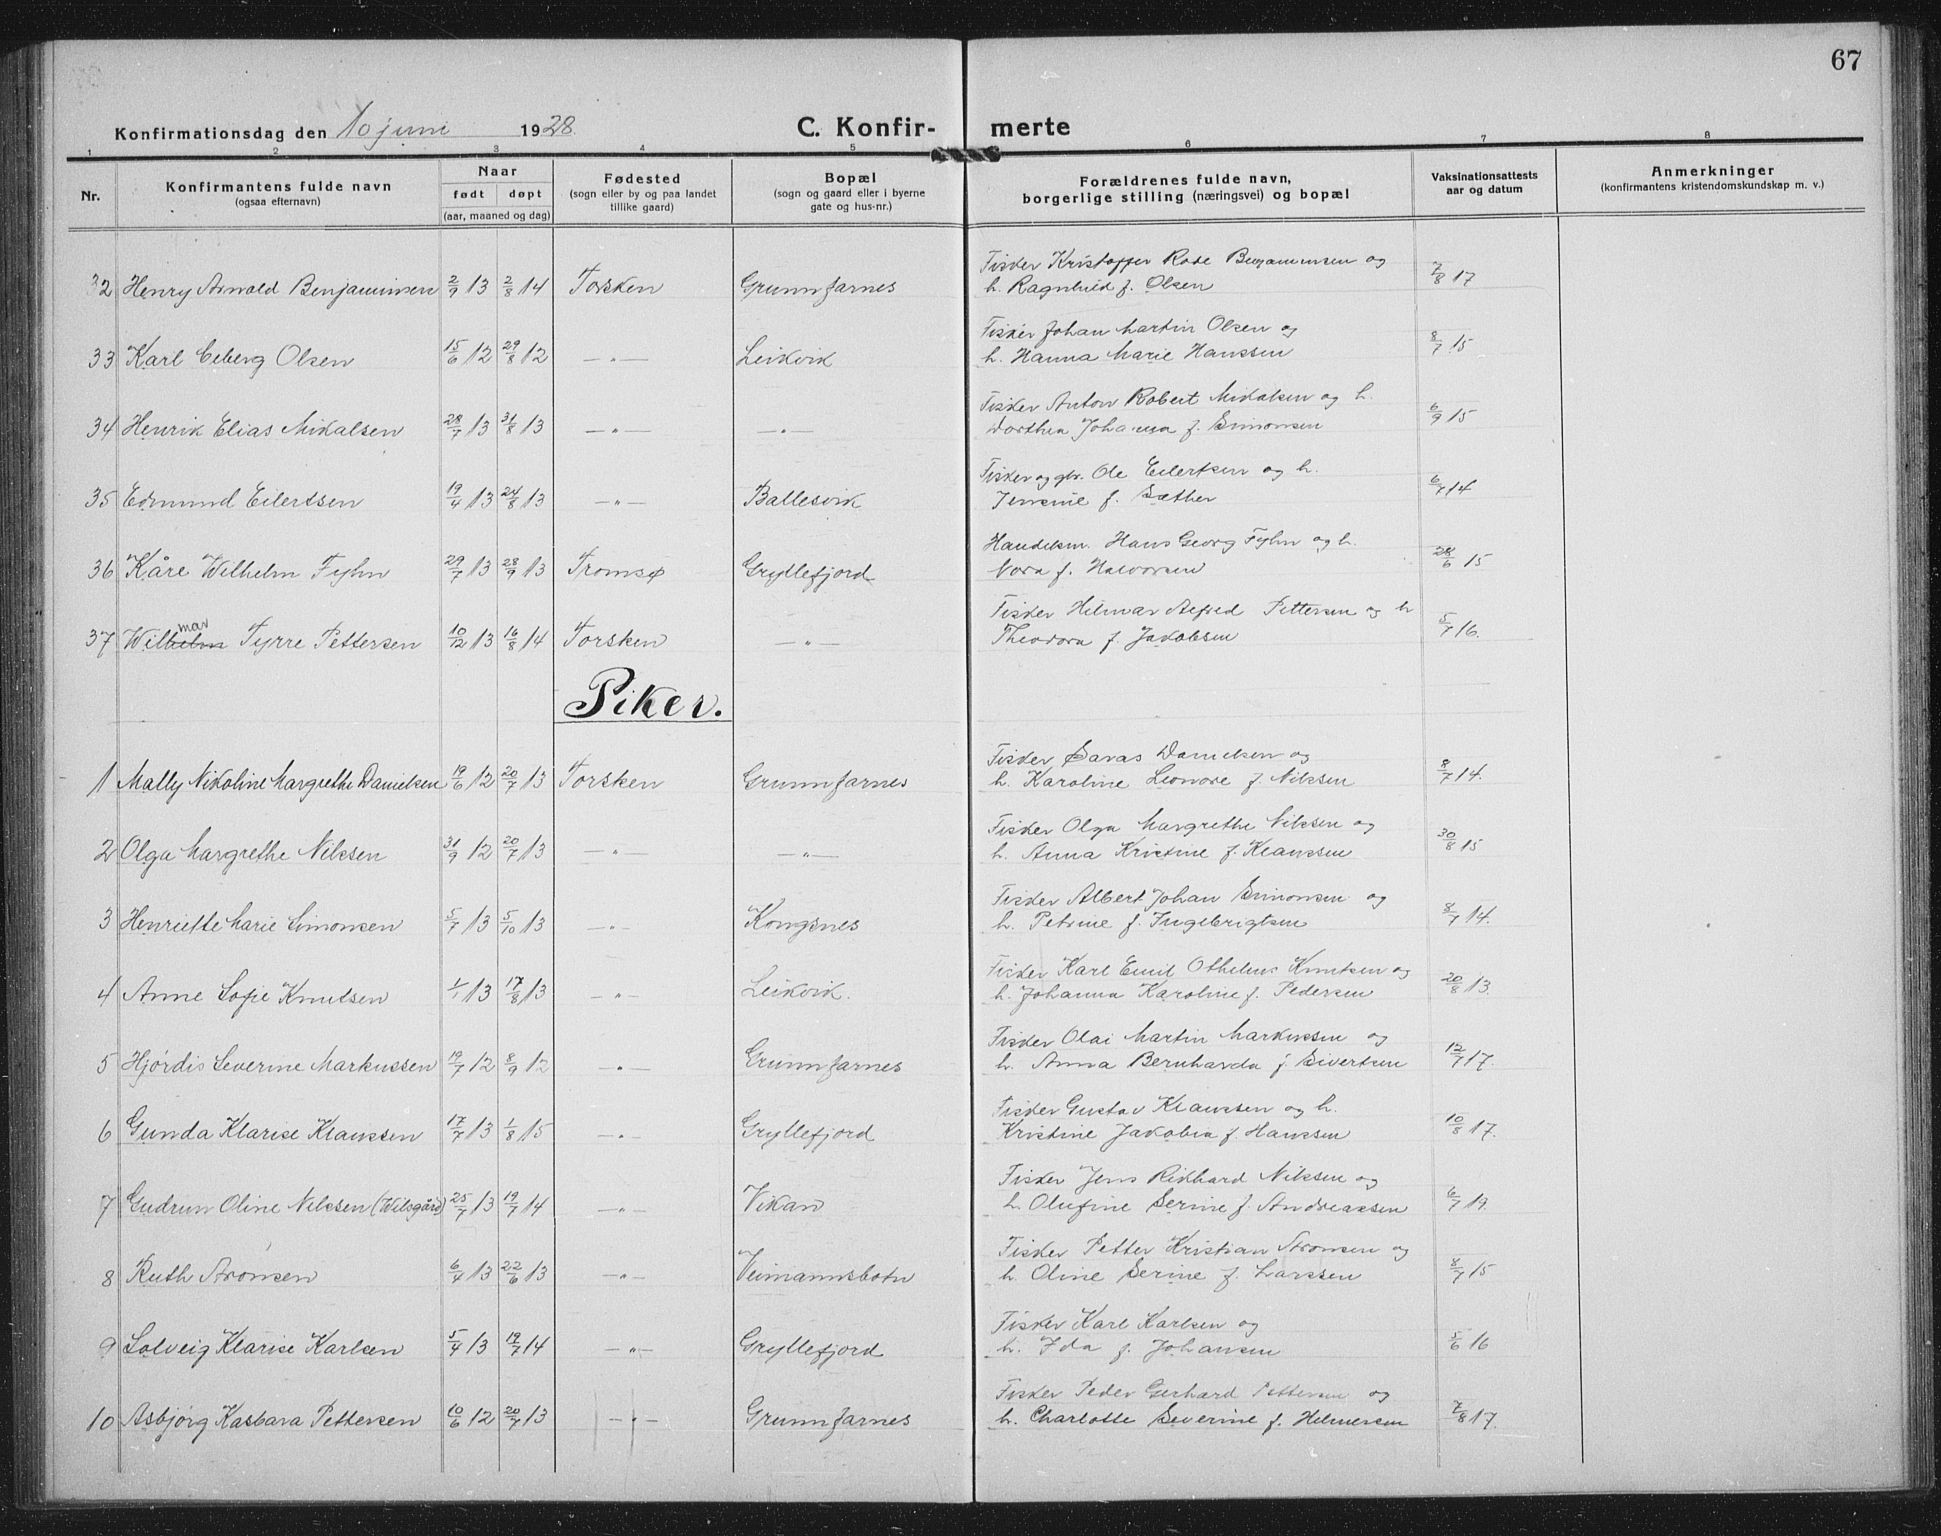 67
Konfirmationsdag den 10 juni 1928.
C. Konfir- merte
1 2 3 4 5 6 7 8
Nr.
Konfirmantens fulde navn
(ogsaa efternavn)
Naar
født døpt
(aar, maaned og dag)
Fødested
(sogn eller by og paa landet
tillike gaard)
Bopæl
(sogn og gaard eller i byerne
gate og hus-nr.)
Forældrenes fulde navn,
borgerlige stilling (næringsvei) og bopæl
Vaksinationsattests
aar og datum
Anmerkninger
(konfirmantens kristendomskundskap m. v.)
Fisker Kristoffer Rode Benjaminsen og
32 Henry Arnold Benjaminsen 2/9 13 2/8 14 Torsken Grunnfarnes h. Ragnhild f. Olsen 7/8 17
Fisker Johan Martin Olsen og
33 Karl Edberg Olsen 15/6 12 29/8 12 —"— Leikvik h. Hanna Marie Hanssen 8/7 15
Fisker Anton Robert Mikalsen og h.
34 Henrik Elias Mikalsen 28/7 13 31/8 13 —"— —"— Dorthea Johanna f. Simonsen 6/9 15
Fisker og gbr. Ole Eilertsen og h.
35 Edmund Eilertsen 19/4 13 24/8 13 —"— Ballesvik Jensine f. Sæther 6/7 14
Handelsm. Hans Georg Fyhn og h.
36 Kåre Wilhelm Fyhn 29/7 13 28/9 13 Tromsø Gryllefjord Nora f. Halvorsen 28/6 15
Fisker Hilmar Alfred Pettersen og h
mar
37 Wilhelm Tyrre Pettersen 10/12 13 16/8 14 Torsken —"— Theodora f. Jakobsen 5/7 16.
Piker.
Fisker Savas Danielsen og
1 Mally Nikoline Margrethe Danielsen 19/6 12 20/7 13 Torsken Grunnfarnes h. Karoline Leonore f. Nilssen 8/7 14.
Fisker Olga Margrethe Nilssen og
2 Olga Margrethe Nilssen 31/9 12 20/7 13 —"— —"— h. Anna Kristine f. Klaussen 30/8 15
Fisker Albert Johan Simonsen og
3 Henriette Marie Simonsen 5/7 13 5/10 13 —"— Kongsnes h. Petrine f. Ingebrigtsen 8/7 14.
Fisker Karl Emil Othelius Knutsen og
4 Anne Sofie Knutsen 1/1 13 17/8 13 —"— Leikvik. h. Johanna Karoline f. Pedersen 20/8 13.
Fisker Olai Martin Markussen og
5 Hjørdis Severine Markussen 19/7 12 8/9 12 —"— Grunnfarnes h. Anna Bernharda f. Sivertsen 12/7 17.
Fisker Gustav Klaussen og h.
6 Gunda Klarise Klaussen 17/7 13 1/8 15 —"— Gryllefjord Kristine Jakobia f. Hanssen 10/8 17.
Fisker Jens Rikhard Nilssen og
7 Gudrun Oline Nilssen (Wilsgård) 25/7 13 19/7 14 —"— Vikan h. Olufine Serine f. Andreassen 6/7 19.
Fisker Petter Kristian Aronsen og
8 Ruth Aronsen 6/4 13 22/6 13 —"— Veimannsbotn h. Oline Serine f. Larssen 8/7 15
Fisker Karl Karlsen og
9 Solveig Klarise Karlsen 5/4 13 19/7 14 —"— Gryllefjord h. Ida f. Johansen 5/6 16
Fisker Peder Gerhard Pettersen og
10 Asbjørg Kasbara Pettersen 10/6 12 20/7 13 —"— Grunnfarnes h. Charlotte Severine f. Helmersen 7/8 17.